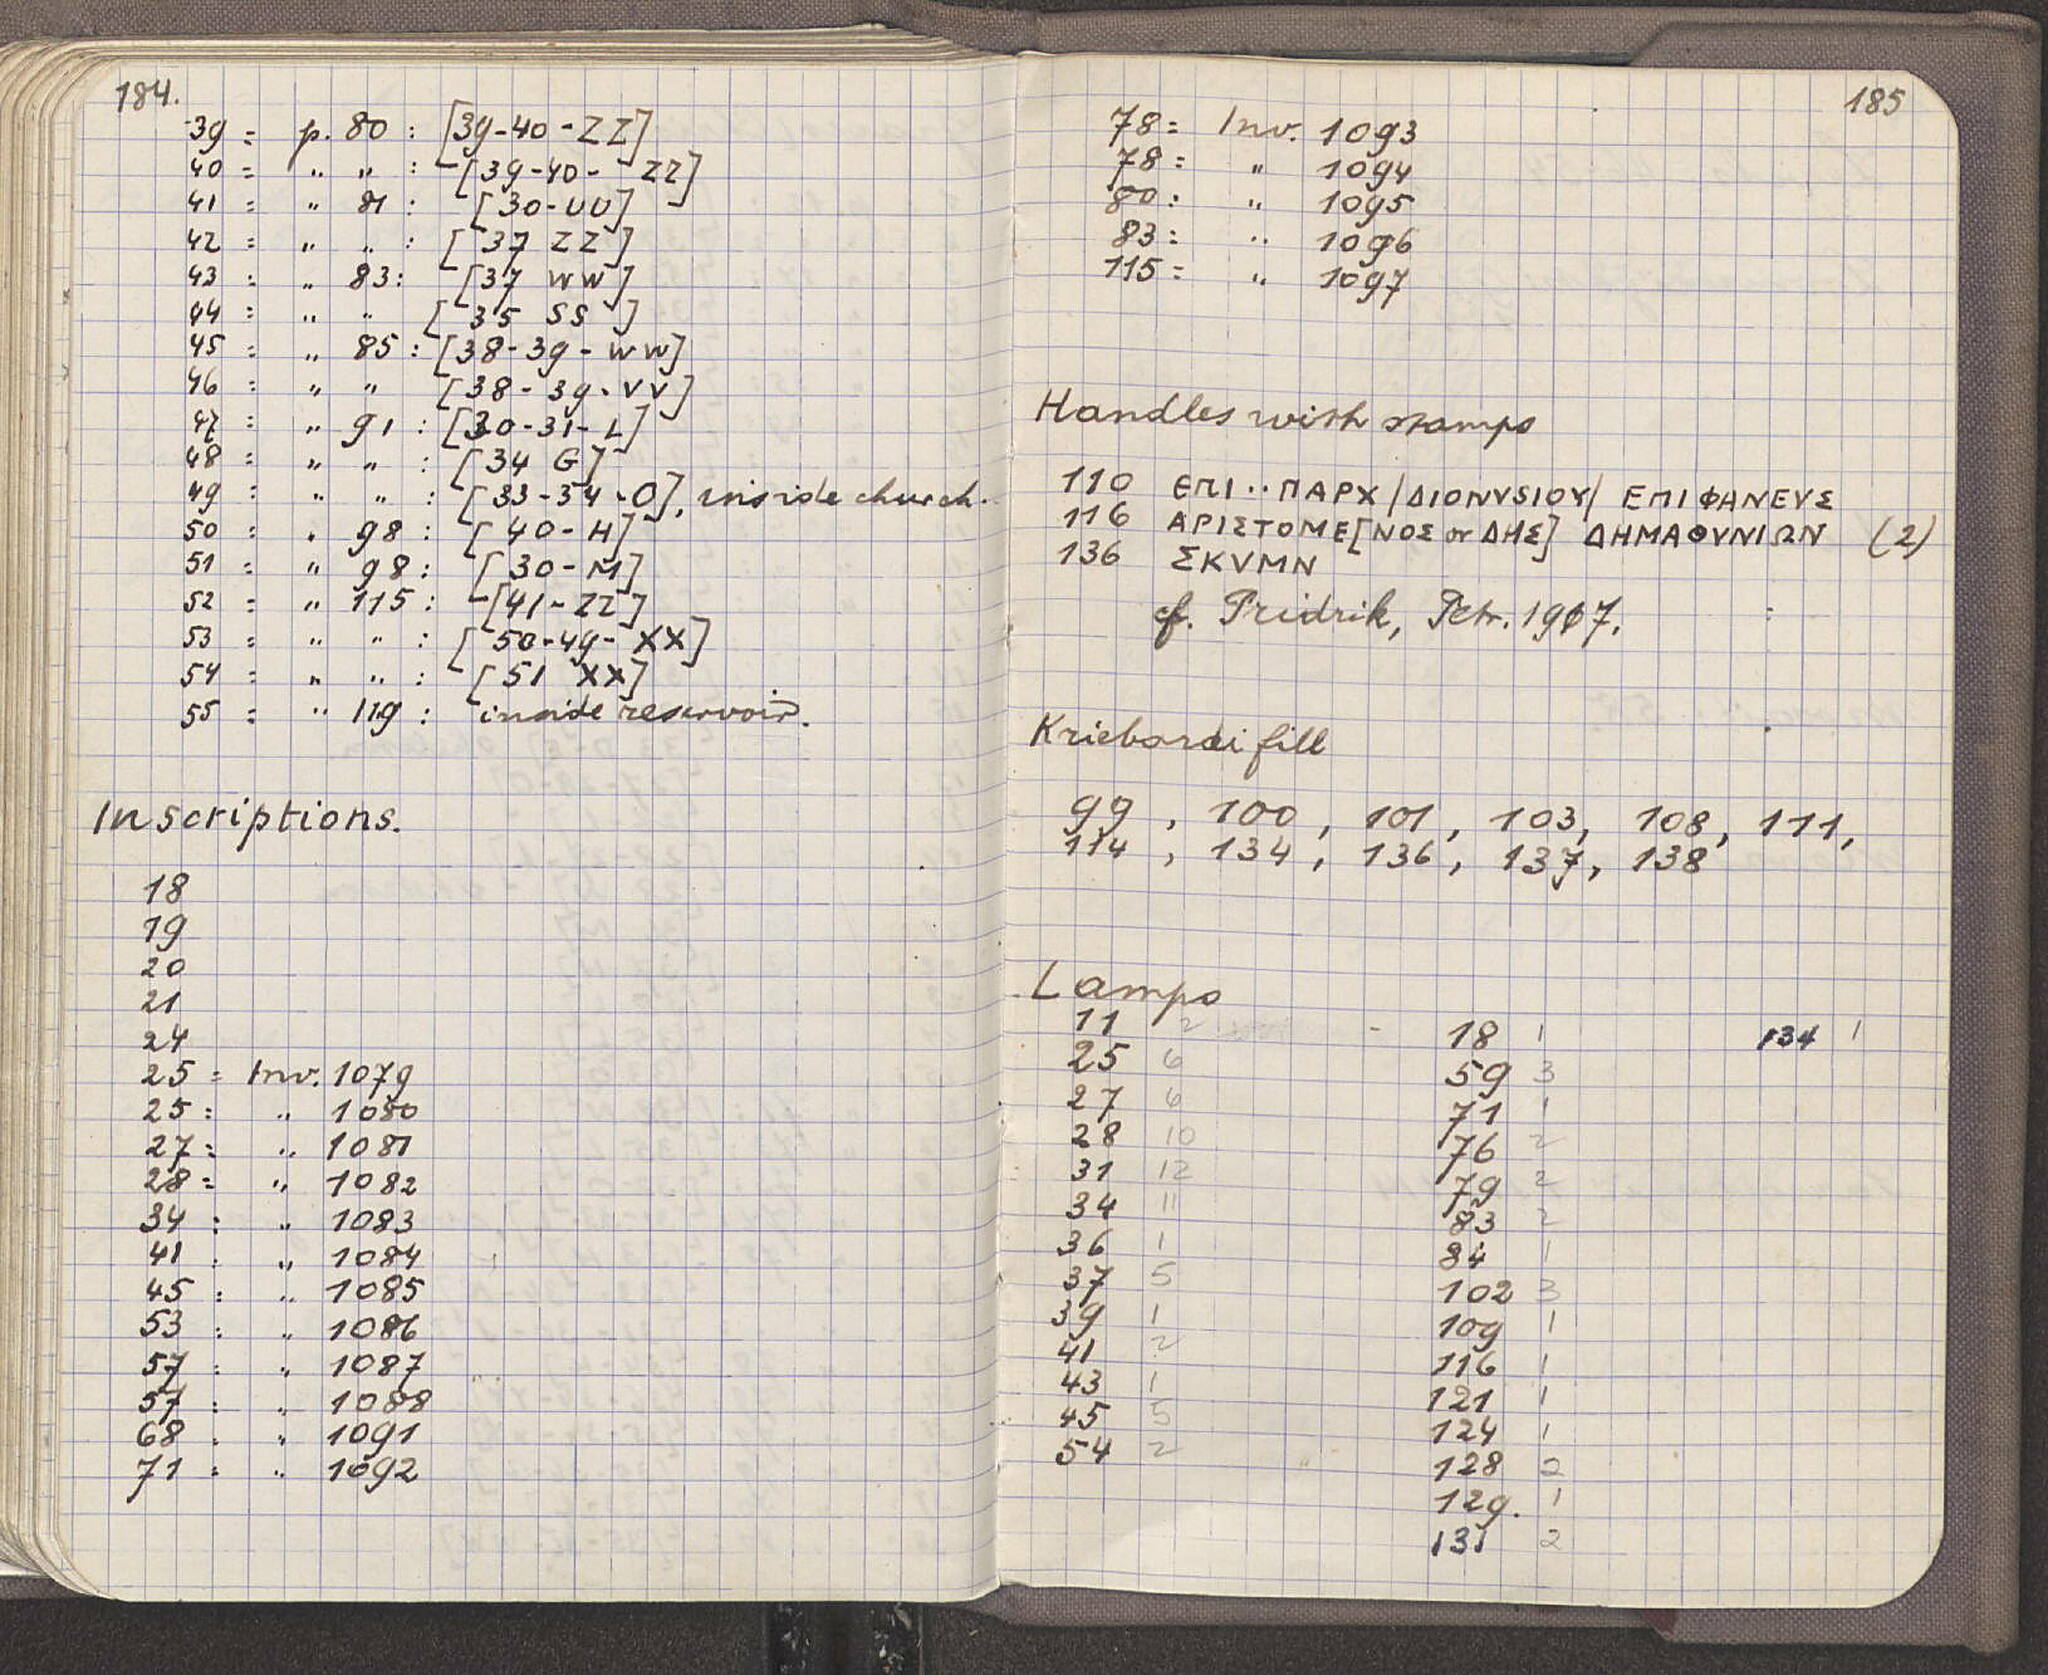 184.
39 = p. 80 : [39-40-ZZ]
40 = " " : [39-40- ZZ]
41 = " 81 : [30-UU]
42 = " " : [37 ZZ]
43 : " 83: [37 WW]
44 = " " [35 SS]
45 = " 85 : [38-39-WW]
46 : " " [38-39-VV]
47 : " 91 : [30-31-L]
48 = " " : [34 G]
49 : " " : [33-34-O], inside church.
50 : " 98 : [40-H]
51 = " 98 : [30-M]
52 = " 115 : [41-ZZ]
53 = " " : [50-49-XX]
54 = " " : [51 XX]
55 = " 119 : inside reservoir.
Inscriptions.
18
19
20
21
24
25 = Inv. 1079
25 : " 1080
27 = " 1081
28 = " 1082
34 : " 1083
41 : " 1084
45 : " 1085
53 : " 1086
57 : " 1087
57 : " 1088
68 : " 1091
71 : " 1092
185
78 = Inv. 1093
78 : " 1094
80 : " 1095
83 : " 1096
115 = " 1097
Handles with stamps
110 ΕΠΙ··ΠΑΡΧ/ΔΙΟΝVSΙΟΥ/ ΕΠΙΦΑΝΕΥΣ
116 ΑΡΙΣΤΟΜΕ[ΝΟΣ or ΔΗΣ] ΔΗΜΑΘΥΝΙΩΝ (2)
136 ΣΚVΜΝ
cf. Pridrik, Petr. 1917.
Kriebardi fill
99, 100, 101, 103, 108, 111,
114, 134, 136, 137, 138
Lamps
11 2 18 1 134 1
25 6 59 3
27 6 71 1
28 10 76 2
31 12 79 2
34 11 83 2
36 1 84 1
37 5 102 3
39 1 109 1
41 2 116 1
43 1 121 1
45 5 124 1
54 2 128 2
129. 1
131 2